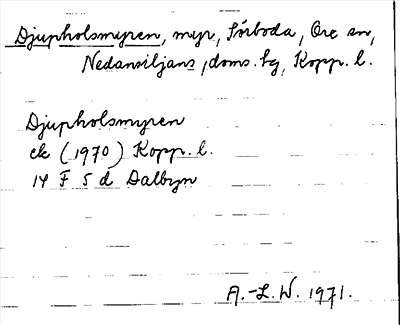 Djupholsmyren, myr, Sörboda, Ore sn,
Nedansiljans, doms. hg, Kopp. l.
Djupholsmyren
ek (1970) Kopp. l.
14 F 5 d Dalbyn
A.-L. W. 1971.